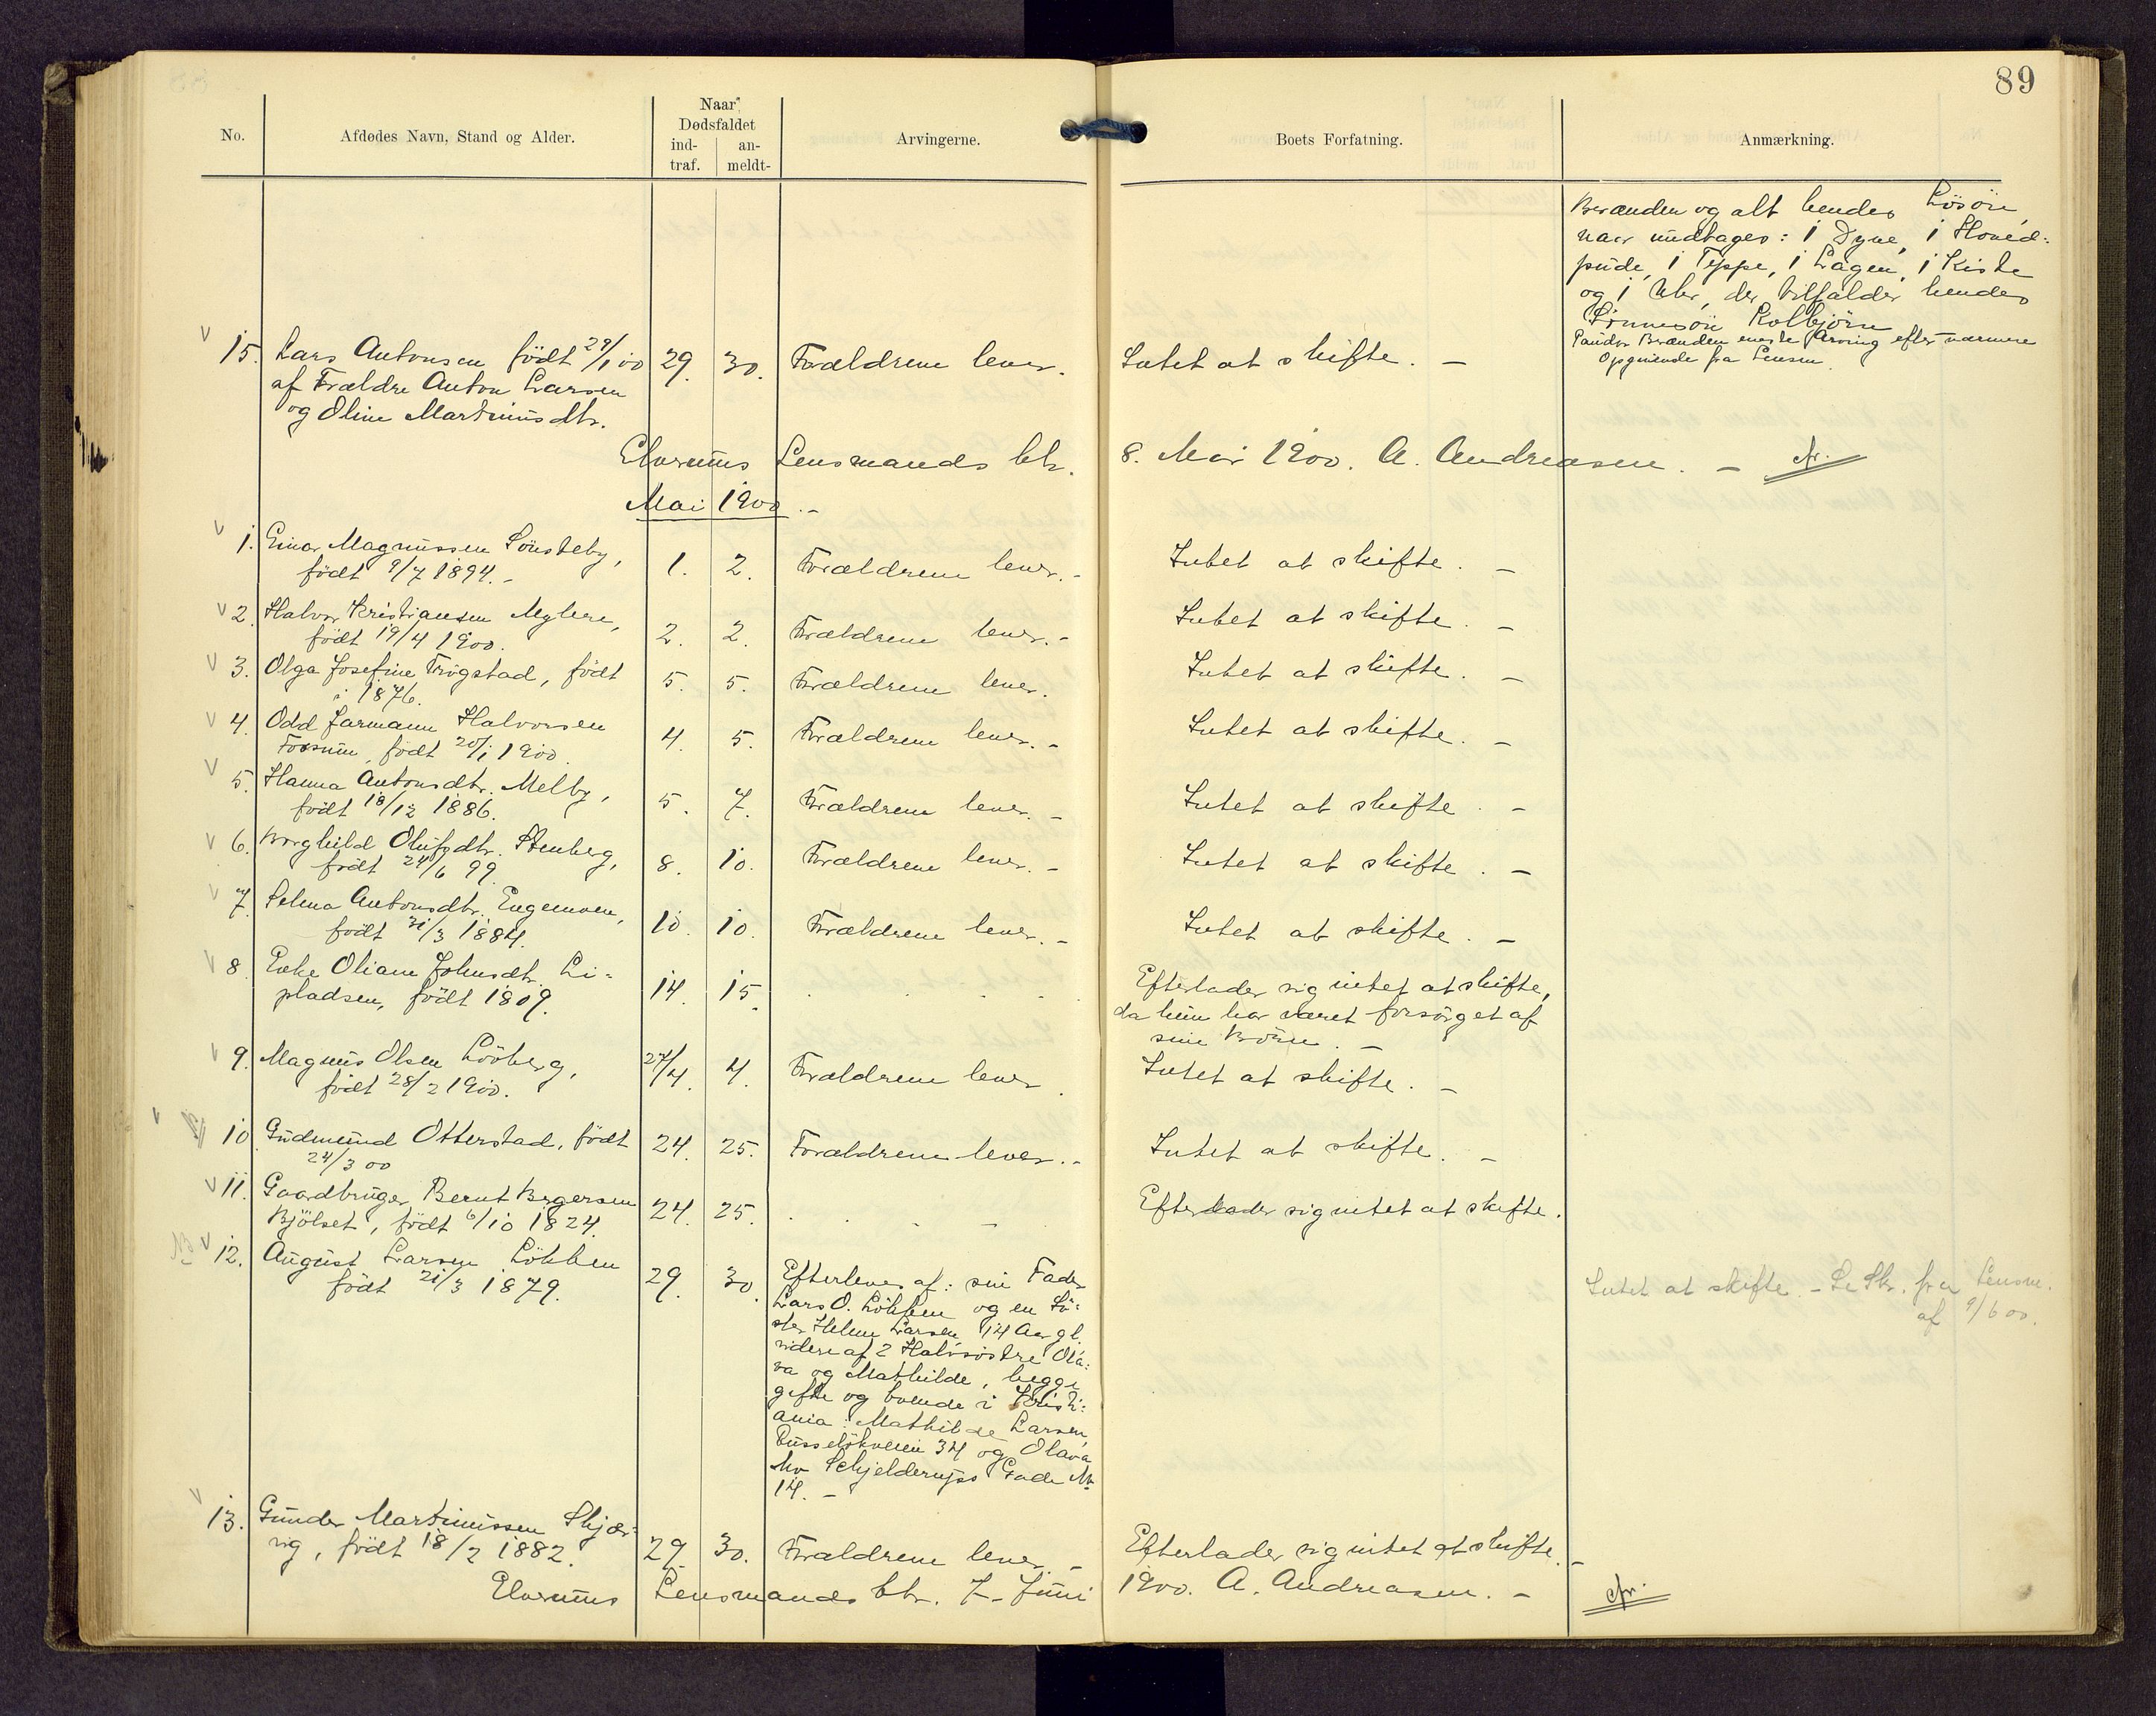 89
No. Afdødes Navn, Stand og Alder. Naar Dødsfaldet ind- traf. an- meldt- Arvingerne. Boets Forfatning. Anmærkning.
og alt hendes Lösöre,
naar undtages: 1 Dyne, 1 Hoved-
pude, 1 Teppe, 1 Lagen, 1 Kiste
og 1 Uhr, der tilfalder hendes
Sönnesön Kolbjörn
eneste Arving efter nærmere
Opgivende fra Lensm.
15. Lars Antonsen född 29/1 00 29. 30. Forældrene lever. Intet at skifte. –
af Forældre Anton Larsen
og Oline Martinusdtr.
Elverums Lensmands ktr. 8. Mai 1900. A. Andreasen. –
Mai 1900. –
1. Einar Magnussen Sönsteby, 1. 2. Forældrene lever. – Intet at skifte. –
født 9/7 1894. –
2. Halvor Kristiansen Myhre, 2. 2. Forældrene lever. – Intet at skifte. –
født 19/4 1900.
3. Olga Josefine Trögstad, født 5. 5. Forældrene lever. Intet at skifte. –
i 1876.
4. Odd Jarmann Halvorsen 4. 5. Forældrene lever. – Intet at skifte. –
Fossum, født 20/1 1900.
5. Hanna Antonsdtr. Melby, 5. 7. Forældrene lever. – Intet at skifte. –
født 18/12 1886.
6. Borghild Olufsdtr. Stenberg, 8. 10. Forældrene lever. – Intet at skifte. –
født 24/6 99.
7. Selma Antonsdtr. Engemoen, 10. 10. Forældrene lever. – Intet at skifte. –
født 31/3 1884.
8. Enke Oliane Johnsdtr. Li- 14. 15. Efterlader sig intet at skifte,
pladsen, født 1809. da hun har været forsörget af
sine Börn. –
9. Magnus Olsen Lövberg, 27/4. 4. Forældrene lever Intet at skifte. –
født 28/2 1900.
10 Gudmund Otterstad, født 24. 25. Forældrene lever. – Intet at skifte. –
24/3 00
11. Gaardbruger Bernt Bergersen 24. 25. Efterlader sig intet at skifte.
Bjölset, født 6/10 1824.
12. August Larsen Lökken 29. 30. Efterleves af: sin Fader
født 21/3 1879. Lars O. Lökken og en Sö-
ster Helene Larsen, 14 Aar gl.
videre af 2 Halvsöstre Ola-
va og Mathilde, begge
gifte og boende i Kristi-
ania: Mathilde Larsen,
Russelökveien 34 og Olava
Schjelderups Gade No
14. –
Intet at skifte. – Se Skr. fra Lensm.
af 9/6 00.
13. Gunder Martinussen Skjær- 29. 30. Forældrene lever. – Efterlader sig intet at skifte. –
vig, født 18/2 1882.
Elverums Lensmands ktr. 7. Juni 1900. A. Andreasen. –